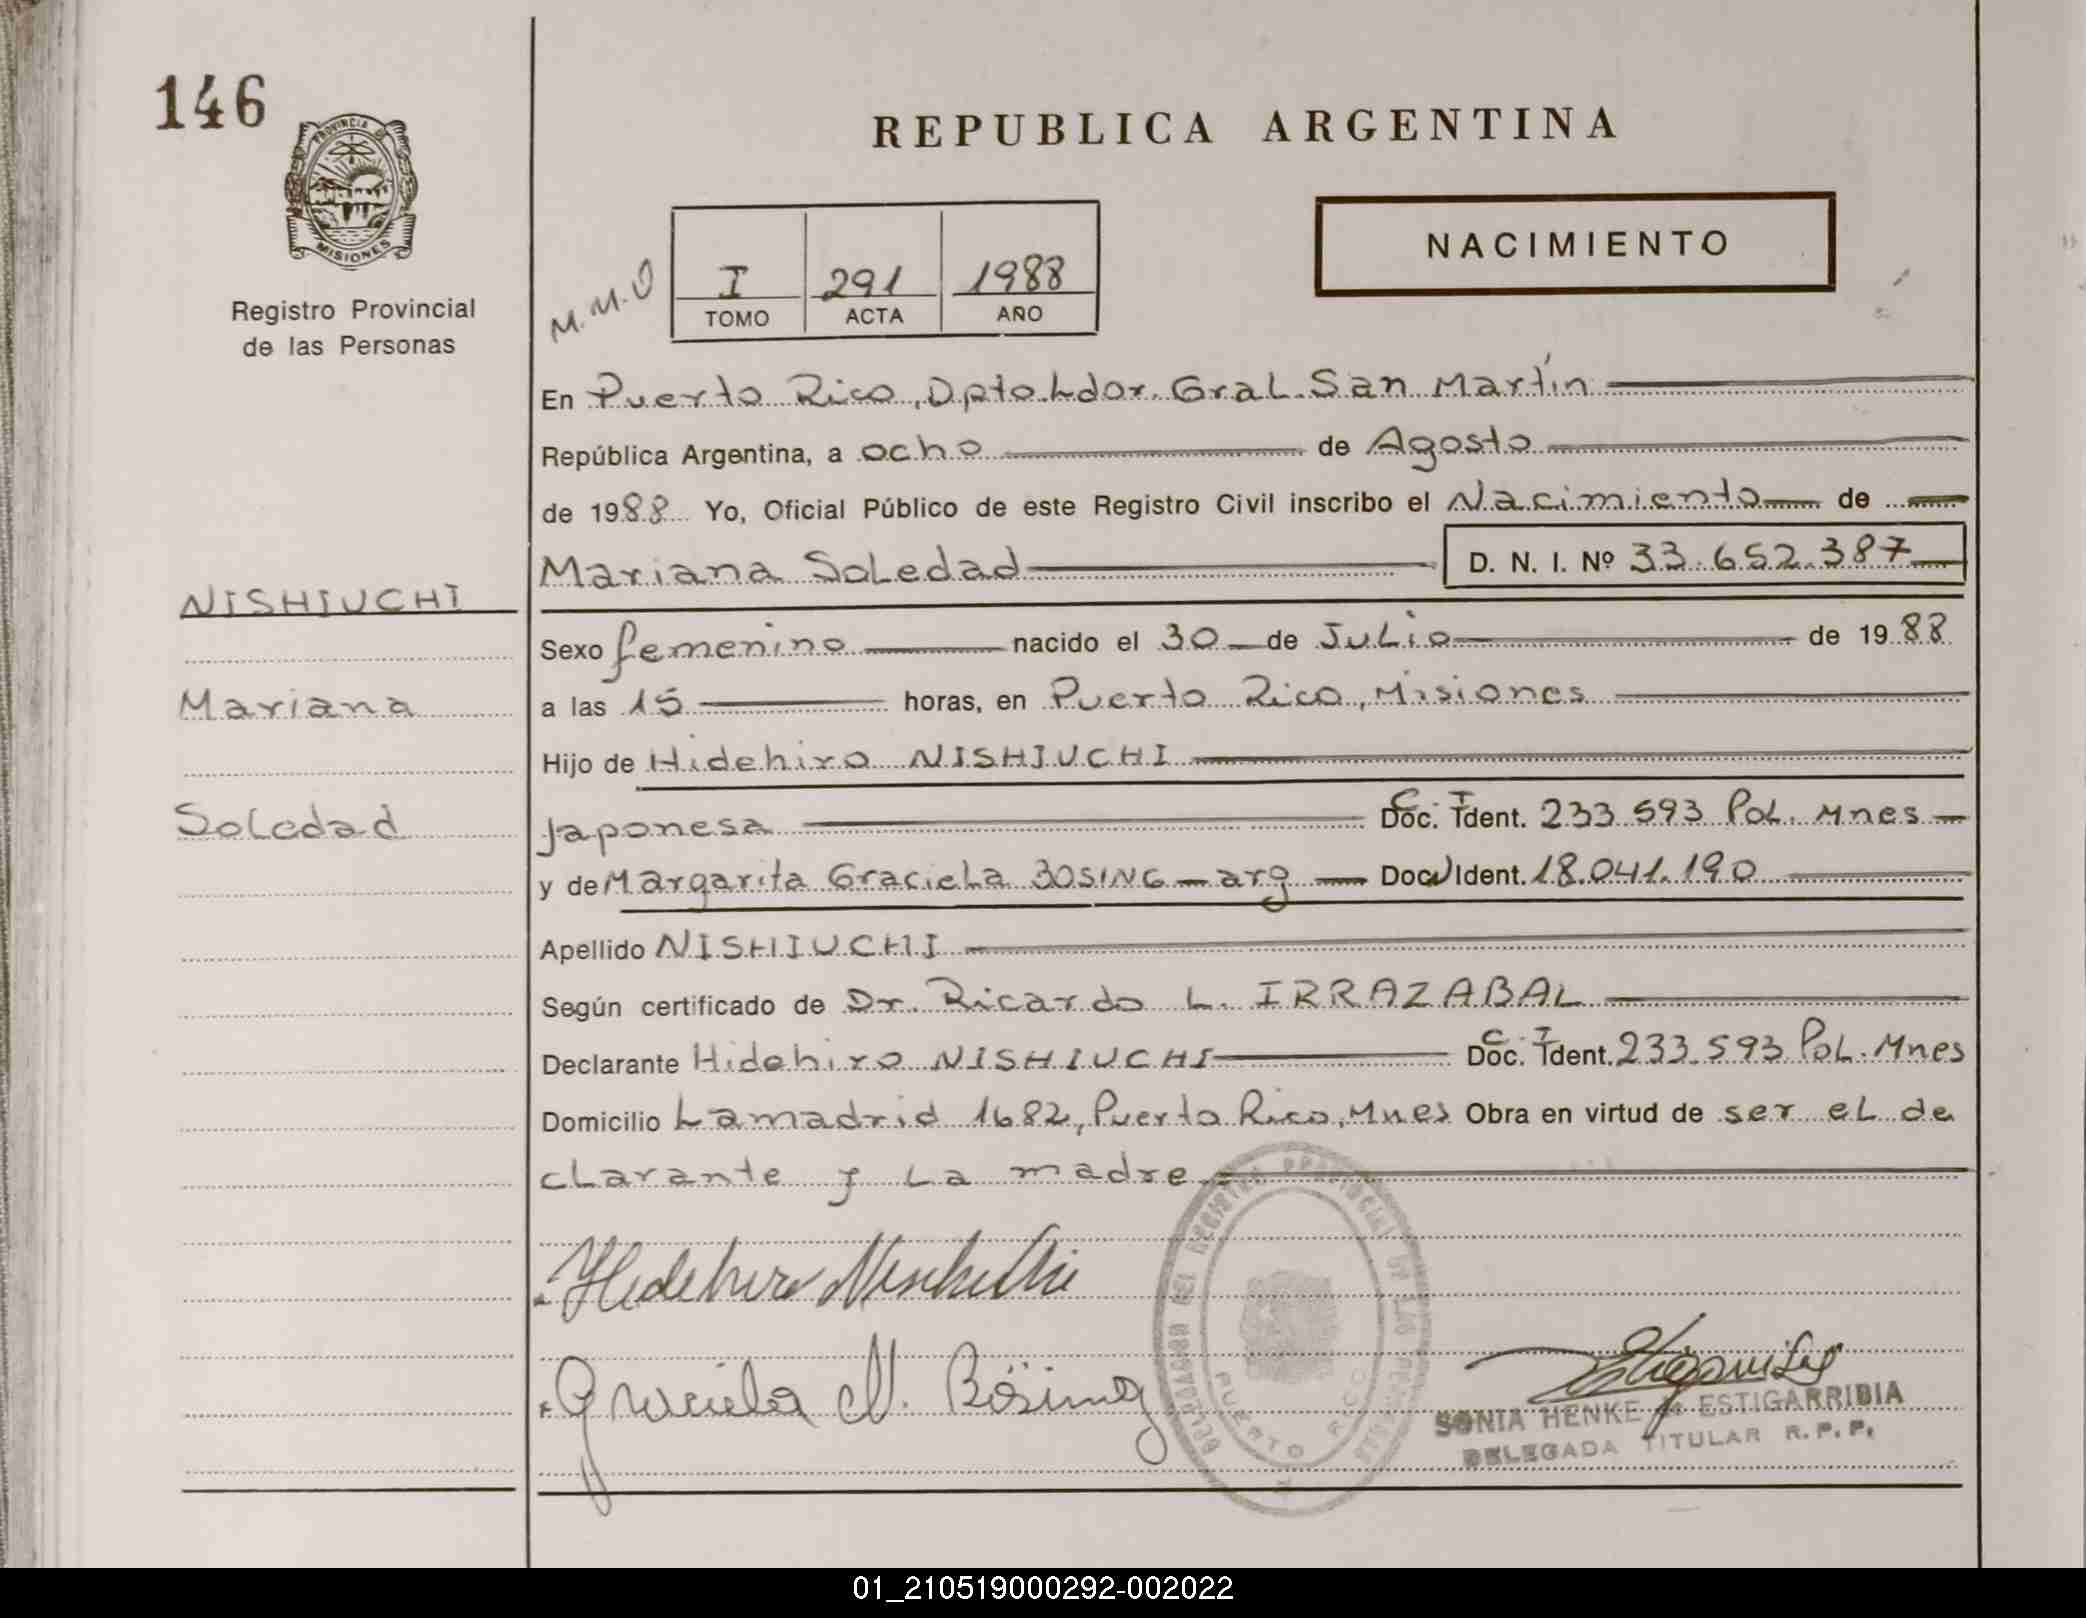 146
PROVINCIA DE
MISIONES
Registro Provincial
de las Personas
REPUBLICA ARGENTINA
NACIMIENTO
M.M.O
I 291 1988
TOMO ACTA AÑO
En Puerto Rico, Dpto. Ldor. Gral. San Martín
República Argentina, a ocho de Agosto
de 1988 Yo, Oficial Público de este Registro Civil inscribo el Nacimiento de
Mariana Soledad D. N. I. Nº 33.652.387
NISHIUCHI
Sexo femenino nacido el 30 de Julio de 1988
Mariana
a las 15 horas, en Puerto Rico, Misiones
Hijo de Hidehiro NISHIUCHI
Soledad
japonesa Doc. Ident. C. I. 233.593 Pol. Mnes
y de Margarita Graciela BOSING - arg Doc. Ident. 18.041.190
Apellido NISHIUCHI
Según certificado de Dr. Ricardo L. IRRAZABAL
Declarante Hidehiro NISHIUCHI Doc. Ident. C. I. 233.593 Pol. Mnes
Domicilio Lamadrid 1682, Puerto Rico, Mnes Obra en virtud de ser el de
clarante y la madre
Hidehiro Nishiuchi
Graciela M. Bösing
DELEGADA DEL REGISTRO PROVINCIAL DE LAS PERSONAS
PUERTO RICO
SONIA HENKE de ESTIGARRIBIA
DELEGADA TITULAR R.P.P.
01_210519000292-002022